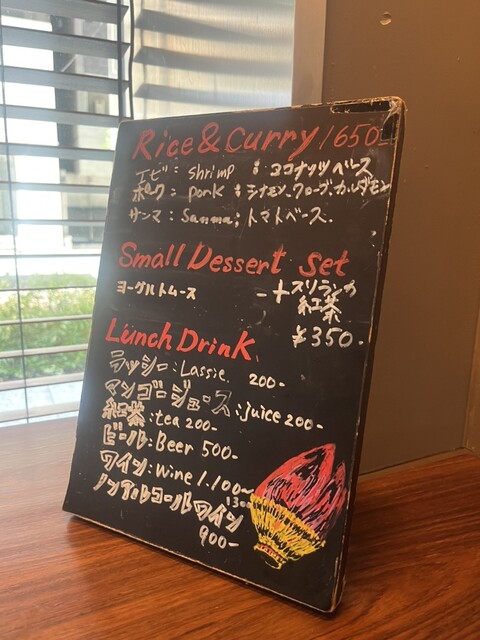 Rice & Curry 1650-
エビ: shrimp : ココナッツベース
ポーク: pork : シナモン、クローブ、カルダモン
サンマ: Sanma; トマトベース.
Small Dessert Set
ヨーグルトムース -+スリランカ
紅茶
¥350.
Lunch Drink
ラッシー: Lassie. 200-
マンゴージュース: juice 200-
紅茶: tea 200-
ビール: Beer 500-
ワイン: wine 1.100~
1300
ノンアルコールワイン
900-